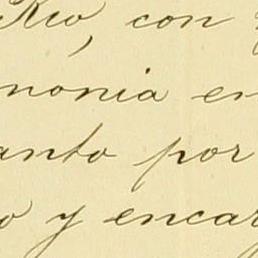 Rio, con
monia en
anto por
o y encar